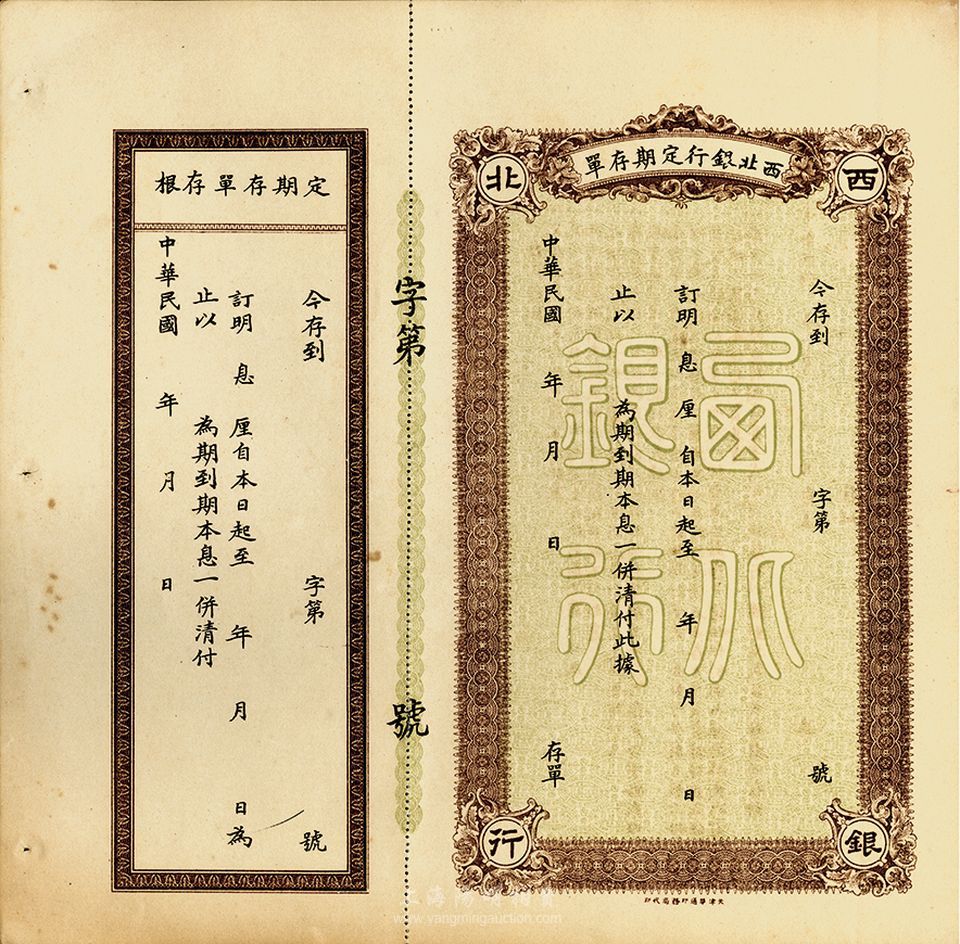 西北銀行定期存單
西
北
銀
行
今存到 字第 號
訂明 息 厘 自本日起至 年 月 日
止以 為期到期本息一併清付此據
中華民國 年 月 日 存單
西北
銀行
天津華通印務局代印
字第 號
定期存單存根
今存到 字第 號
訂明 息 厘自本日起至 年 月 日為
止以 為期到期本息一併清付
中華民國 年 月 日
上海陽明拍賣
www.yangmingauction.com